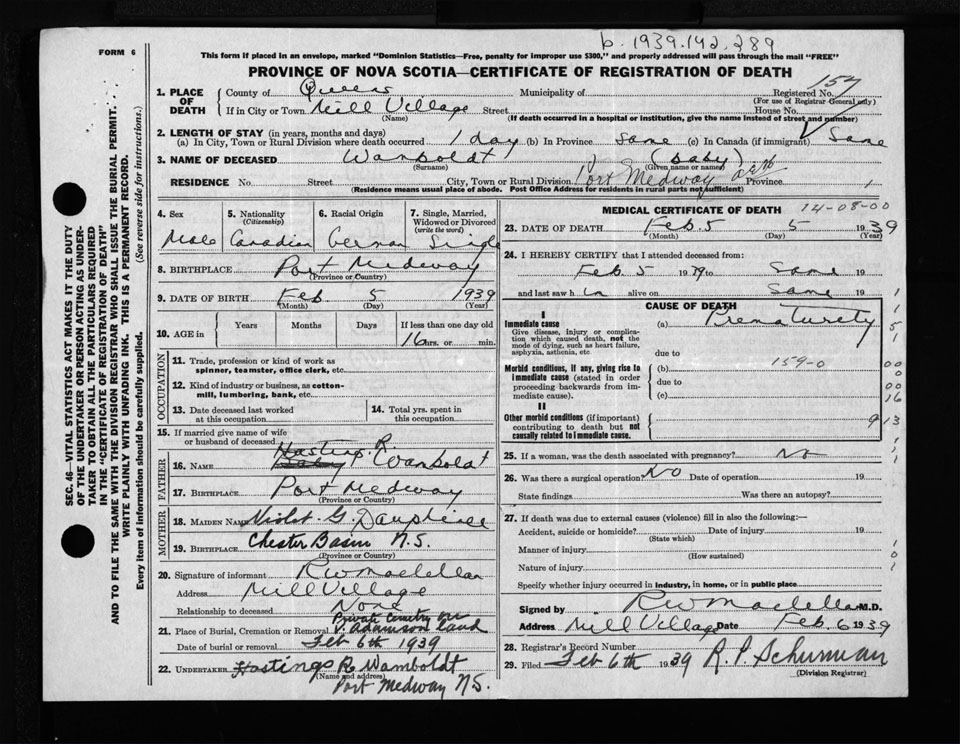 b. 1939.142.289
FORM 6
This form if placed in an envelope, marked "Dominion Statistics—Free, penalty for improper use $300," and properly addressed will pass through the mail "FREE"
PROVINCE OF NOVA SCOTIA—CERTIFICATE OF REGISTRATION OF DEATH
SEC. 46—VITAL STATISTICS ACT MAKES IT THE DUTY
OF THE UNDERTAKER OR PERSON ACTING AS UNDER-
TAKER TO OBTAIN ALL THE PARTICULARS REQUIRED
IN THE "CERTIFICATE OF REGISTRATION OF DEATH"
AND TO FILE THE SAME WITH THE DIVISION REGISTRAR WHO SHALL ISSUE THE BURIAL PERMIT.
WRITE PLAINLY WITH UNFADING INK. THIS IS A PERMANENT RECORD.
Every item of information should be carefully supplied. (See reverse side for instructions.)
1. PLACE OF DEATH County of Queens Municipality of Registered No. 157
(For use of Registrar General only)
If in City or Town Mill Village Street House No.
(Name) (If death occurred in a hospital or institution, give the name instead of street and number)
2. LENGTH OF STAY (in years, months and days)
(a) In City, Town or Rural Division where death occurred 1 day (b) In Province Same (c) In Canada (if immigrant) Same
3. NAME OF DECEASED Wamboldt (baby)
(Surname) (Given name or names)
RESIDENCE No. Street City, Town or Rural Division Port Medway Province
(Residence means usual place of abode. Post Office Address for residents in rural parts not sufficient)
4. Sex 5. Nationality (Citizenship) 6. Racial Origin 7. Single, Married, Widowed or Divorced (write the word)
Male Canadian German Single
8. BIRTHPLACE Port Medway
(Province or Country)
9. DATE OF BIRTH Feb 5 1939
(Month) (Day) (Year)
10. AGE in Years Months Days If less than one day old
16 hrs. or min.
OCCUPATION
11. Trade, profession or kind of work as
spinner, teamster, office clerk, etc.
12. Kind of industry or business, as cotton-
mill, lumbering, bank, etc.
13. Date deceased last worked
at this occupation
14. Total yrs. spent in
this occupation
15. If married give name of wife
or husband of deceased
FATHER
Hastings R.
16. NAME Baby Wamboldt
17. BIRTHPLACE Port Medway
(Province or Country)
MOTHER
18. MAIDEN NAME Violet G.
19. BIRTHPLACE Chester Basin N.S.
(Province or Country)
20. Signature of informant R W Maclellan
Address Mill Village
Relationship to deceased None
Private Cemetry on
21. Place of Burial, Cremation or Removal V. Adamson Land
Date of burial or removal Feb 6th 1939
22. UNDERTAKER Hastings R. Wamboldt
(Name and address)
Port Medway N.S.
MEDICAL CERTIFICATE OF DEATH 14-08-00
23. DATE OF DEATH Feb. 5 5 1939
(Month) (Day) (Year)
24. I HEREBY CERTIFY that I attended deceased from:
Feb 5 1939 to Same 19
and last saw him alive on Same 19
CAUSE OF DEATH
I
Immediate cause
Give disease, injury or complica-
tion which caused death, not the
mode of dying, such as heart failure,
asphyxia, asthenia, etc.
(a) Prematurety
due to
Morbid conditions, if any, giving rise to
immediate cause (stated in order
proceeding backwards from im-
mediate cause).
(b) 159-0
due to
(c)
II
Other morbid conditions (if important)
contributing to death but not
causally related to immediate cause.
25. If a woman, was the death associated with pregnancy? No
26. Was there a surgical operation? No Date of operation 19
State findings Was there an autopsy?
27. If death was due to external causes (violence) fill in also the following:—
Accident, suicide or homicide? Date of injury 19
(State which)
Manner of injury
(How sustained)
Nature of injury
Specify whether injury occurred in industry, in home, or in public place
Signed by R W Maclellan M.D.
Address Mill Village Date Feb. 6 1939
28. Registrar's Record Number
29. Filed Feb 6th 1939 R. P. Schurman
(Division Registrar)